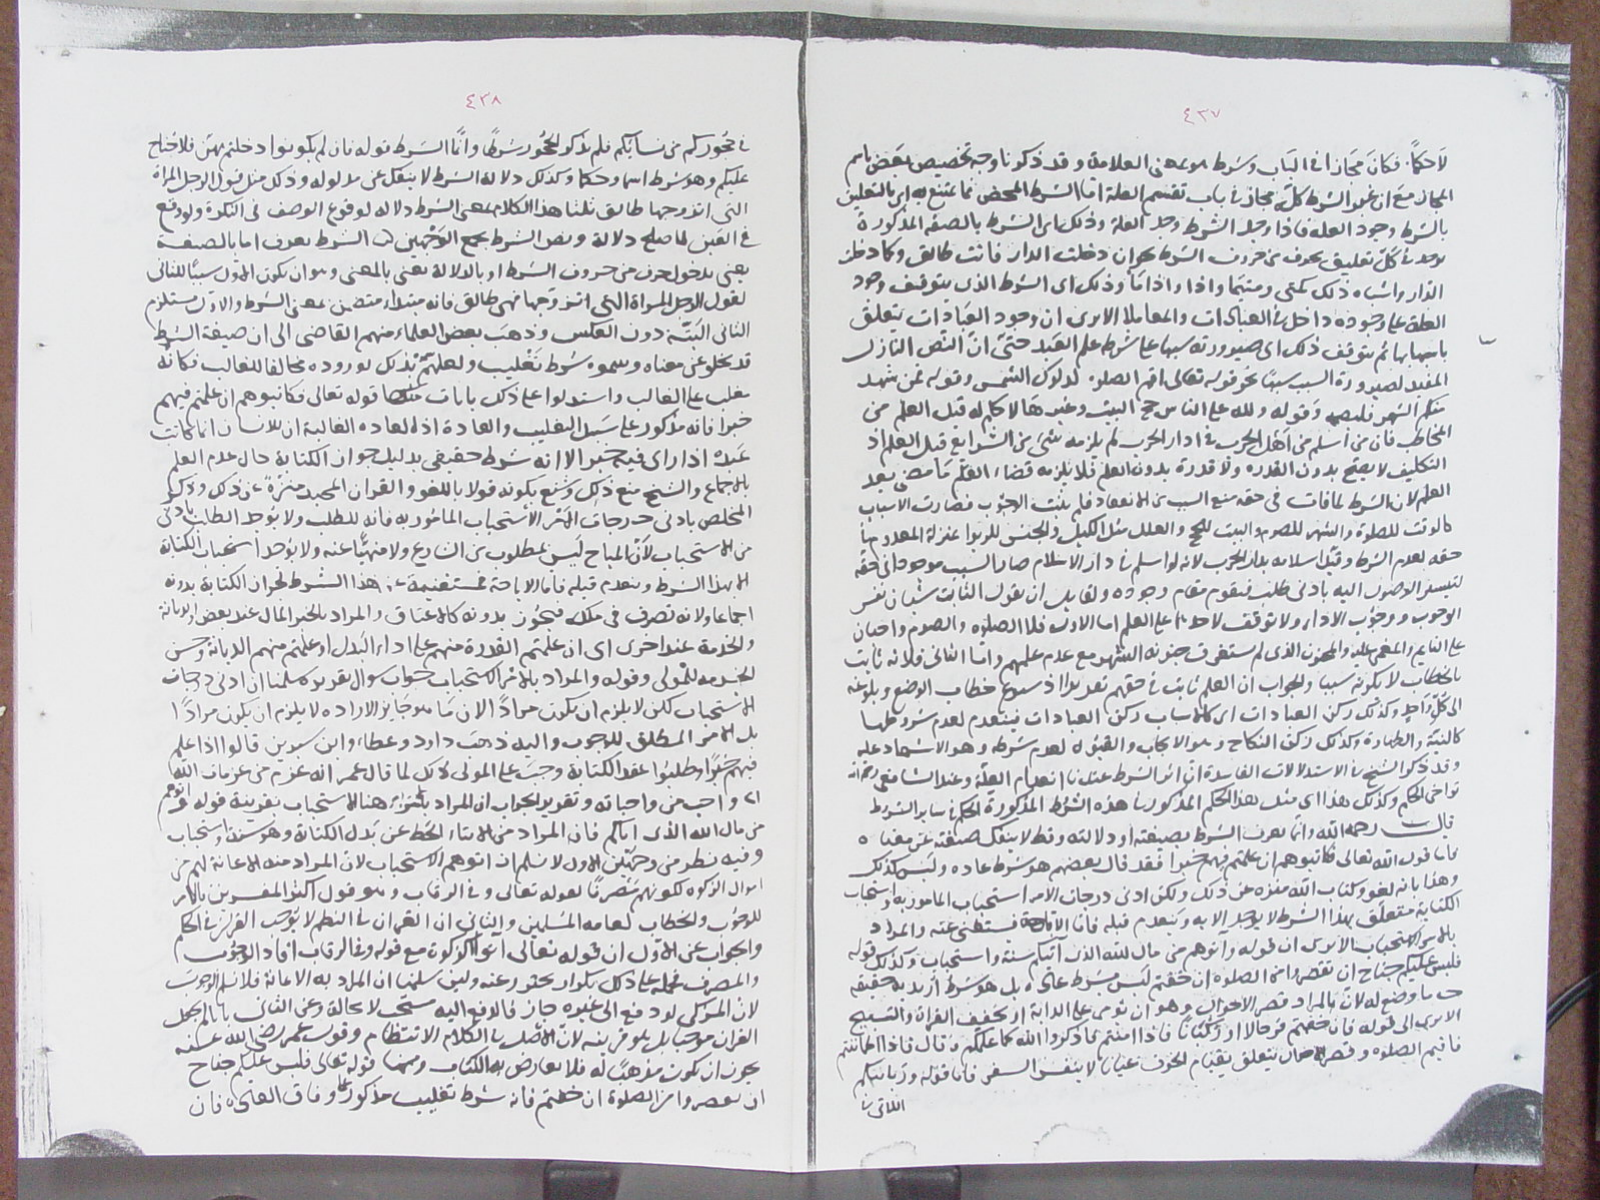 ٤٣٧
لا حكمًا فكان مجازا في الباب وشرط هو بمعنى العلامة وقد ذكرنا وجه تخصيص بعض باسم
المجاز مع ان غير الشرط كله مجاز في باب تقسيم العلة اما الشرط المحض فما يمتنع به اي بالتعليق
بالشرط وجود العلة فاذا وجد الشرط وجد العلة وذلك اي الشرط بالصفة المذكورة
يوجد في كل تعليق بحرف من حروف الشرط نحو ان دخلت الدار فانت طالق وكلما دخلت
الدار واشباه ذلك كمتى ومتيما واذا واذا ما وذلك اي الشرط الذي يتوقف وجود
العلة على وجوده داخل في العبادات والمعاملات الا يرى ان وجود العبادات يتعلق
باسبابها ثم يتوقف ذلك اي صيرورته سببا على شرط علم العبد حتى ان النص النازل
المفيد لصيرورة السبب سببًا نحو قوله تعالى اقم الصلوة لدلوك الشمس وقوله فمن شهد
منكم الشهر فليصمه وقوله ولله على الناس حج البيت وغيرها لا حكم له قبل العلم من
المخاطب فان من اسلم من اهل الحرب في دار الحرب لم يلزمه شئ من الشرايع قبل العلم اذ
التكليف لا يصح بدون القدرة ولا قدرة بدون العلم فلا يلزمه قضاء القلم ما مضى بعد
العلم لان الشرط لما فات في حقه منع السبب من الانعقاد فلم يثبت الوجوب فصارت الاسباب
كالوقت للصلوة والشهر للصوم والبيت للحج والعلل مثل الكيل والجنس للربوا بمنزلة المعدوم في
حقه لعدم الشرط وقيل اسلامه بدار الحرب لانه لو اسلم في دار الاسلام صار السبب موجودا في حقه
لتيسر الوصول اليه بادنى طلب فيقوم مقام وجوده ولقايل ان يقول الثابت شيئان نفس
الوجوب ووجوب الاداء ولا توقف لاحدهما على العلم اما الاول فلان الصلوة والصوم واجبان
على النايم والمغمى عليه والمجنون الذي لم يستغرق جنونه الشهر مع عدم علمهم واما الثاني فلانه ثابت
بالخطاب لا بكونه سببا والجواب ان العلم ثابت في حقهم تقديرا اذ شيوع خطاب الوضع وبلوغه
الى كل واحد وكذلك ركن العبادات اي كالاسباب ركن العبادات ينعدم لعدم شروطها
كالنية والطهارة وكذلك ركن النكاح وهو الايجاب والقبول لعدم شرطه وهو الاشهاد عليه
وقد ذكر الشيخ في الاستدلالات الفاسدة ان اثر الشرط عندنا انعدام العلة وعند الشافعي رحمه الله
تراخي الحكم وكذلك هذا اي مثل هذا الحكم المذكور في هذه الشروط المذكورة الحكم في ساير الشروط
قال رحمه الله وانما يعرف الشرط بصيغته او دلالته وقط لا ينفك صيغته عن معناه
فاما قول الله تعالى فكاتبوهم ان علمتم فيهم خيرا فقد قال بعضهم هو شرط عادة وليس كذلك
وهذا بانه لغو وكتاب الله منزه عن ذلك ولكن ادنى درجات الامر استحباب المامور به واستحباب
الكتابة متعلق بهذا الشرط لا يوجد الا به وينعدم قبله فاما الاباحة فستغني عنه والمراد
بالامر الاستحباب الا يرى ان قوله وآتوهم من مال الله الذي آتيكم سنة واستحباب وكذلك قوله
فليس عليكم جناح ان تقصروا من الصلوة ان خفتم ليس بشرط عادة بل هو شرط اريد به حقيقة
ما وضع له لان المراد قصر الاحوال وهو ان يومى على الدابة او يخفف القراة والتسبيح
الا يرى الى قوله فان خفتم فرجالا او ركبانا فاذا امنتم فاذكروا الله كما علمكم وقال فاذا اطماننتم
فاقيموا الصلوة وقصر الاحوال يتعلق بقيام الخوف عيانا لا بنفس السفر فاما قوله وربائبكم
اللاتي
٤٣٨
في حجوركم من نسائكم فلم يذكر الحجور شرطًا وانما الشرط قوله فان لم تكونوا دخلتم بهن فلا جناح
عليكم وهو شرط اسما وحكما وكذلك دلالة الشرط لا ينفك عن مدلوله وذلك مثل قول الرجل المراة
التي اتزوجها طالق ثلثا هذا الكلام بمعنى الشرط دلالة لوقوع الوصف في النكرة ولو وقع
في العين لما صلح دلالة ونص الشرط يجمع الوجهين الشرط يعرف اما بالصيغة
يعني بدخول حرف من حروف الشرط او بالدلالة يعني بالمعنى وهو ان يكون الاول سببًا للثاني
لقول الرجل المراة التي اتزوجها فهي طالق فانه مبتدا متضمن بمعنى الشرط والاول مستلزم
الثاني البتة دون العكس وذهب بعض العلماء منهم القاضي الى ان صيغة الشرط
قد يخلو عن معناه وسموه شرط تغليب ولعلهم بذلك لوروده مخالفا للغالب فكانه
يغلب على الغالب واستدلوا على ذلك بايات منها قوله تعالى فكاتبوهم ان علمتم فيهم
خيرا فانه مذكور على سبيل التغليب والعادة اذ العادة الغالبة ان الانسان انما كاتب
عبده اذا راى فيه خيرا لا انه شرط حقيقي بدليل جواز الكتابة حال عدم العلم
بالاجماع والشيخ منع ذلك وشنع بكونه قولا باللغو والقران المجيد منزه عن ذلك وذكر
المخلص بادنى درجات الامر الاستحباب المامور به فانه للطلب ولا يوجد الطلب بادنى
من الاستحباب لان المباح ليس بمطلوب من الشارع ولا منهيًا عنه ولا يوجد استحباب الكتابة
الا بهذا الشرط وينعدم قبله فاما الاباحة فمستغنية عن هذا الشرط لجواز الكتابة بدونه
اجماعا ولانه تصرف في ملكه فيجوز بدونه كالاعتاق والمراد بالخير المال عند بعض والامانة
والخدمة عند اخرى اى ان علمتم القدرة منهم على اداء البدل او علمتم منهم الديانة وحسن
الخدمة للمولى وقوله والمراد بالامر الاستحباب جواب سوال تقديره سلمنا ان ادنى درجات
الاستحباب لكن لا يلزم ان يكون مرادًا الان ما هو جايز الارادة لا يلزم ان يكون مرادًا
بل الامر المطلق للوجوب واليه ذهب داود وعطاء وابن سيرين قالوا اذا علم
فيهم خيرًا وطلبوا عقد الكتابة وجب على المولى ذلك لما قال عمر انه عزم من عزمات الله
اى واجب من واجباته وتقرير الجواب ان المراد هنا الاستحباب بقرينة قوله واتوهم
من مال الله الذي اتاكم فان المراد من الايتاء الحط عن بدل الكتابة وهو سنة واستحباب
وفيه نظر من وجهين الاول لا نسلم ان اتوهم الاستحباب لان المراد منه الاعانة لهم من
اموال الزكوة لكونهم مصرفًا لقوله تعالى وفي الرقاب وهو قول اكثر المفسرين بالامر
للوجوب والخطاب لعامة المسلمين والثاني ان القران في النظم لا يوجب القران في الحكم
والجواب عن الاول ان قوله تعالى آتوا الزكوة مع قوله وفي الرقاب افاد الوجوب
والمصرف فحمله على ذلك تكرار يحترز عنه ولئن سلمنا ان المراد به الاعانة فلا نسلم الوجوب
لان المزكى لو دفع الى غيره جاز فالدفع اليه مستحب لا محالة وعن الثاني بانا لم نجعل
القران موجبا بل هو قرينه لان الاصل في الكلام الانتظام وقول عمر رضي الله عنه
يجوز ان يكون مذهبًا له فلا يعارض به الكتاب ومنها قوله تعالى فليس عليكم جناح
ان تقصروا من الصلوة ان خفتم فانه شرط تغليب مذكور على وفاق العادة فان